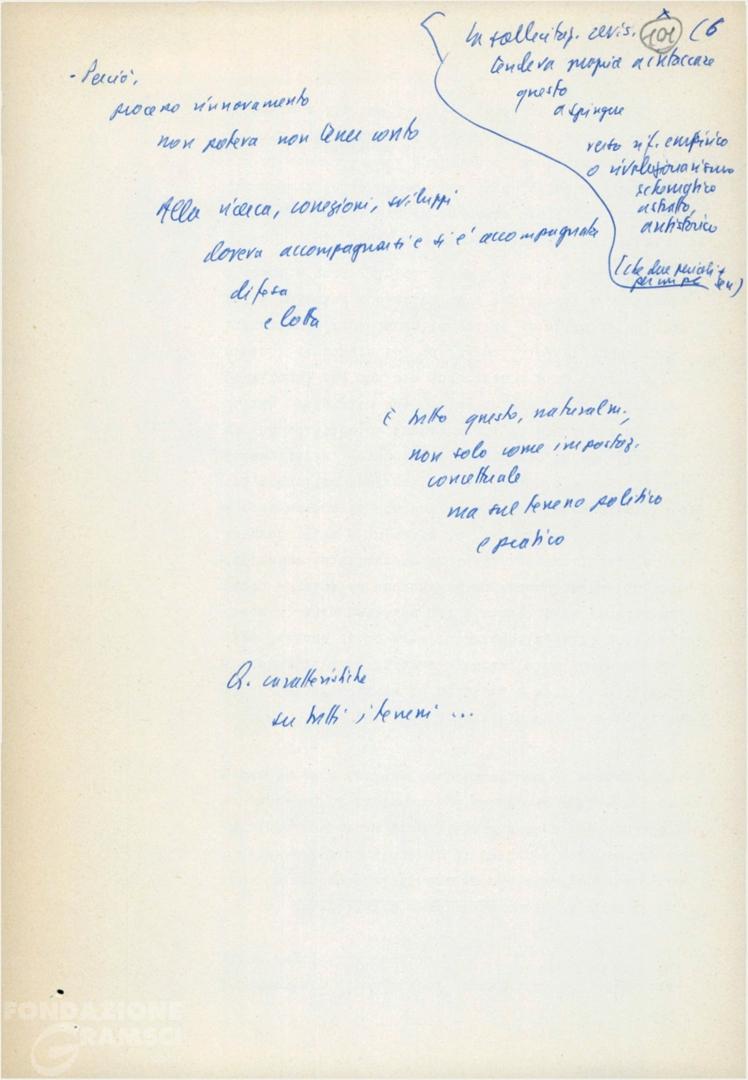 101 (6
La sollecitaz. revis.
tendeva proprio a intaccare
questo
a spingere
verso rif. empirico
o rivoluzionarismo
schematico
astratto,
antistorico
(che due pericoli
- Perciò,
processo rinnovamento
non poteva non tener conto
Alla ricerca, correzioni, sviluppi
doveva accompagnarsi e si è accompagnata
difesa
e lotta
È tutto questo, naturalm.,
non solo come impostaz.
concettuale
ma sul terreno politico
e pratico
Q. caratteristiche
su tutti i terreni ...
FONDAZIONE
GRAMSCI